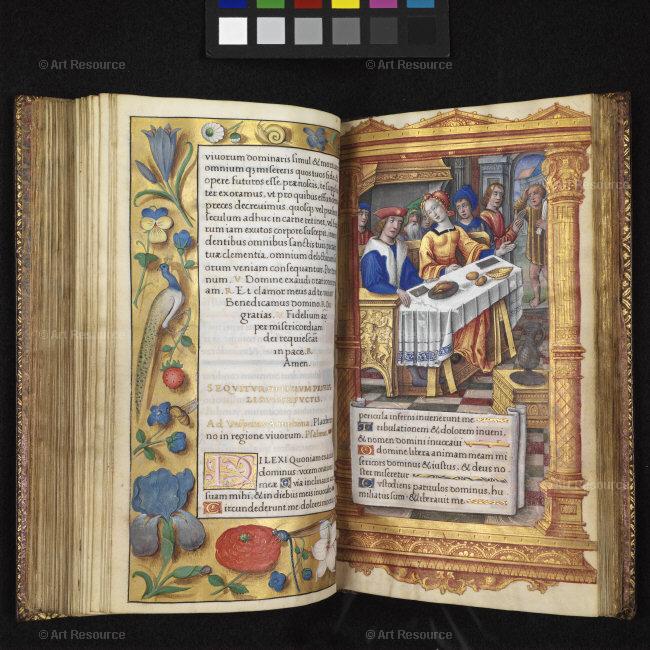 © Art Resource
© Art Resource
viuorum dominaris simul & mortuorum
omnium q; misereris quos tuos fide &
opere futuros esse prænoscis, te supplici
ter exotamus, vt pro quibus effundere
preces decreuimus, quosq; vel præsens
seculum adhuc in carne retinet, vel
tum iam exutos corpore suscepit, inter
dentibus omnibus sanctis tuis pieta
tuæ clementia, omnium delictorum
orum veniam consequantur. Per
num. V. Domine exaudi orationem
am. R. Et clamor meus ad te veniat
Benedicamus domino. R. Deo
gratias. V. Fidelium
per misericordiam
dei requiescāt
in pace. R.
Amen.
SEQVITVR
Ad Place
no in regione viuorum. Psalmus
DILEXI Quoniam
dominus: vocem oration
meæ Quia inclinauit
suam mihi, & in diebus meis inuoca
Circundederunt me dolores
pericula inferni inuenerunt me
Tribulationem & dolorem inueni,
& nomen domini inuocaui
O domine libera animam meam mi
sericors dominus & iustus, & deus nos
ter miseretur
Custodiens paruulos dominus, hu
miliatus sum & liberauit me.
© Art Resource
© Art Resource